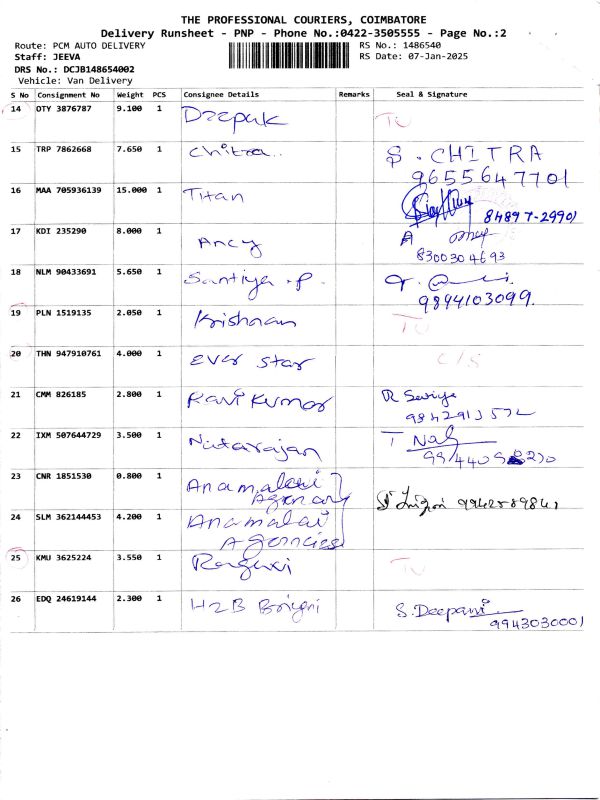 THE PROFESSIONAL COURIERS, COIMBATORE
Delivery Runsheet - PNP - Phone No.:0422-3505555 - Page No.:2
Route: PCM AUTO DELIVERY RS No.: 1486540
Staff: JEEVA RS Date: 07-Jan-2025
DRS No.: DCJB148654002
Vehicle: Van Delivery
S No Consignment No Weight PCS Consignee Details Remarks Seal & Signature
14 OTY 3876787 9.100 1 Deepak
15 TRP 7862668 7.650 1 Chitra.. S. CHITRA
9655647701
16 MAA 705936139 15.000 1 Titan
84897-29901
17 KDI 235290 8.000 1 Ancy
8300304693
18 NLM 90433691 5.650 1 Santiya .P.
9894103099.
19 PLN 1519135 2.050 1 Krishnan
20 THN 947910761 4.000 1 Ever Star C/S
21 CMM 826185 2.800 1 Ravi Kumar
22 IXM 507644729 3.500 1 Natarajan
23 CNR 1851530 0.800 1 Anamalai
24 SLM 362144453 4.200 1 Anamalai
Agencies
25 KMU 3625224 3.550 1
26 EDQ 24619144 2.300 1 H2B S. Deepani
9943030001